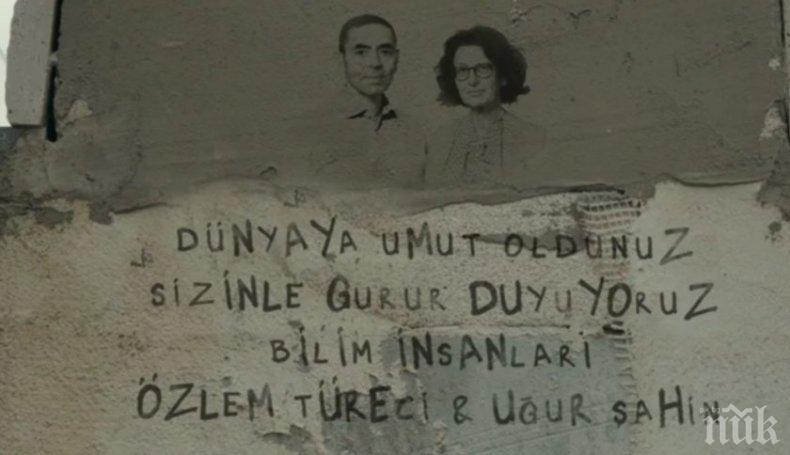 DÜNYAYA UMUT OLDUNUZ
SİZİNLE GURUR DUYUYORUZ
BİLİM İNSANLARİ
ÖZLEM TÜRECİ & UĞUR ŞAHİN